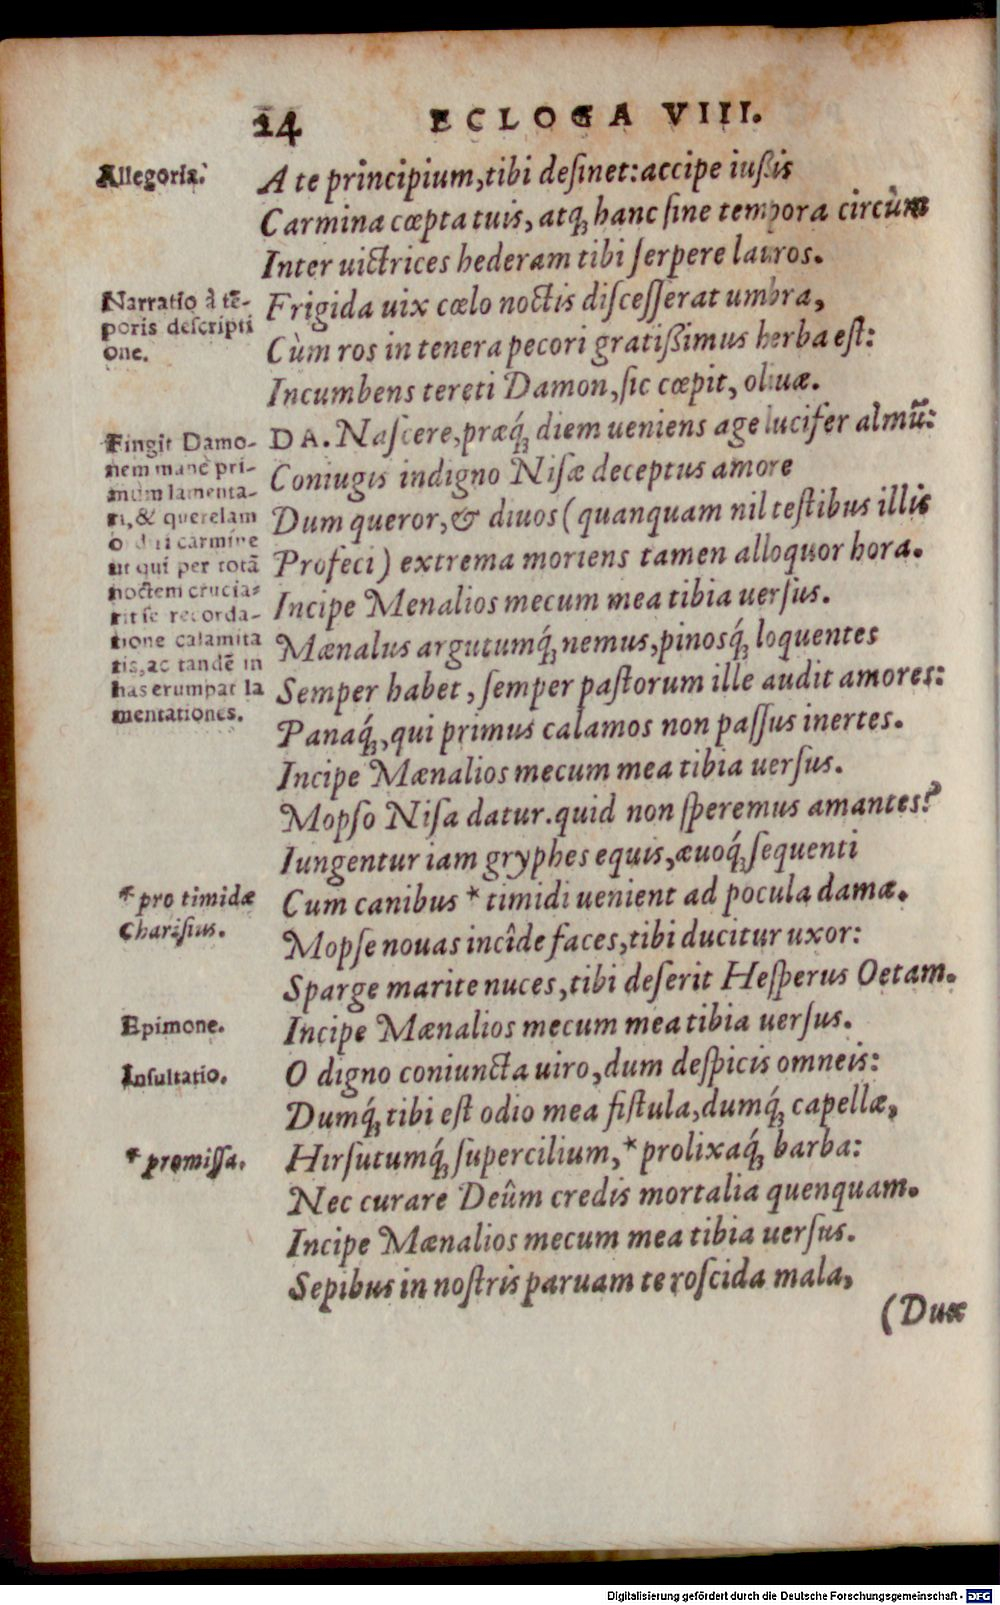 24 ECLOGA VIII.
Allegoria.
A te principium, tibi desinet: accipe iußis
Carmina cœpta tuis, atq; hanc sine tempora circùm
Inter uictrices hederam tibi serpere lauros.
Narratio à tē-
poris descripti
one.
Frigida uix cœlo noctis discesserat umbra,
Cùm ros in tenera pecori gratißimus herba est:
Incumbens tereti Damon, sic cœpit, oliuæ.
Fingit Damo-
nem mane pri-
mùm lamenta-
ri, & querelam
carmine
ut qui per totā
noctem crucia-
rit se recorda-
tione calamita
tis, ac tandē in
has erumpat la
mentationes.
DA. Nascere, præq́; diem ueniens age lucifer almū:
Coniugis indigno Nisæ deceptus amore
Dum queror, & diuos (quanquam nil testibus illis
Profeci) extrema moriens tamen alloquor hora.
Incipe Menalios mecum mea tibia uersus.
Mænalus argutumq́; nemus, pinosq́; loquentes
Semper habet, semper pastorum ille audit amores:
Panaq́;, qui primus calamos non passus inertes.
Incipe Mænalios mecum mea tibia uersus.
Mopso Nisa datur. quid non speremus amantes?
Iungentur iam gryphes equis, æuoq́; sequenti
* pro timidæ
Charisius.
Cum canibus * timidi uenient ad pocula damæ.
Mopse nouas incîde faces, tibi ducitur uxor:
Sparge marite nuces, tibi deserit Hesperus Oetam.
Epimone.
Incipe Mænalios mecum mea tibia uersus.
Insultatio.
O digno coniuncta uiro, dum despicis omneis:
Dumq́; tibi est odio mea fistula, dumq́; capellæ,
* promissa.
Hirsutumq́; supercilium, * prolixaq́; barba:
Nec curare Deûm credis mortalia quenquam.
Incipe Mænalios mecum mea tibia uersus.
Sepibus in nostris paruam te roscida mala,
(Dux
Digitalisierung gefördert durch die Deutsche Forschungsgemeinschaft - DFG